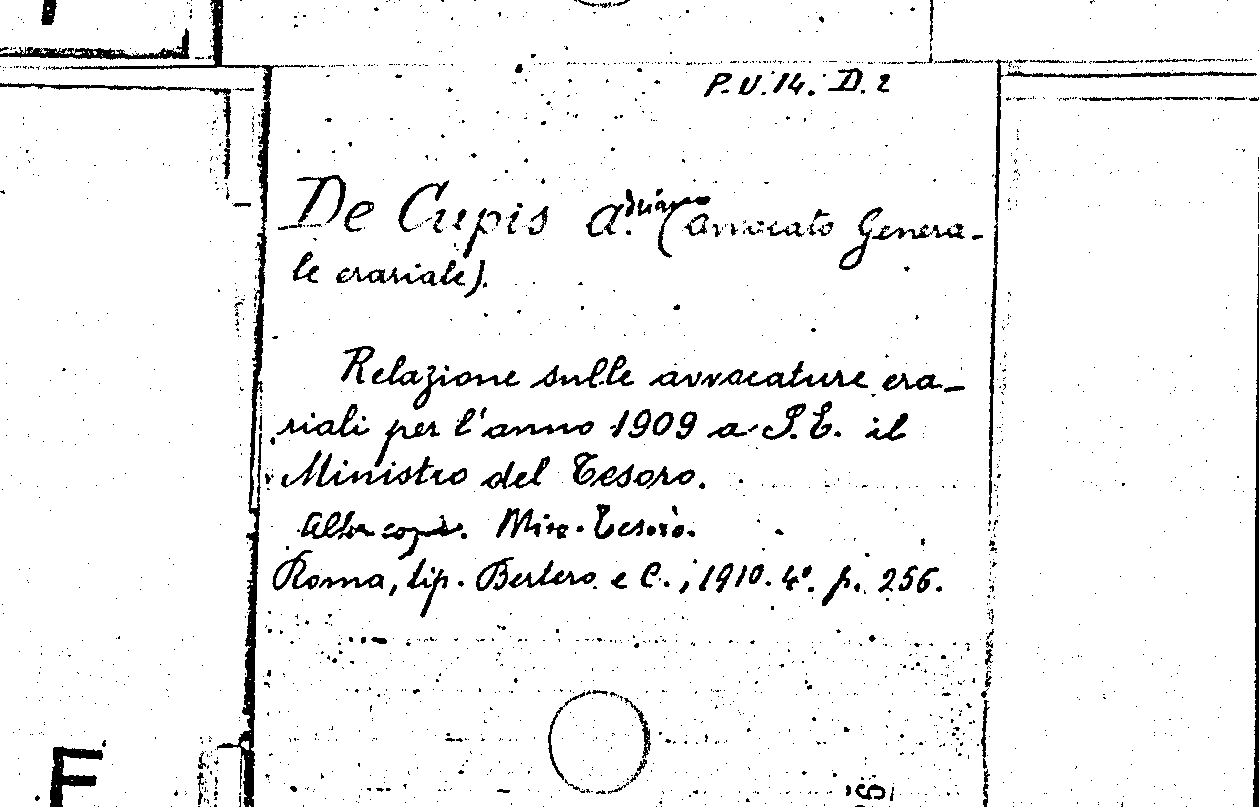 P.V.14. D.2
De Cupis A.driano (avvocato Genera-
le erariale).
Relazione sulle avvocature era-
riali per l'anno 1909 a S.E. il
Ministro del Tesoro.
Altra copia. Min. Tesoro.
Roma, tip. Bertero e C., 1910. 4°. p. 256.
F